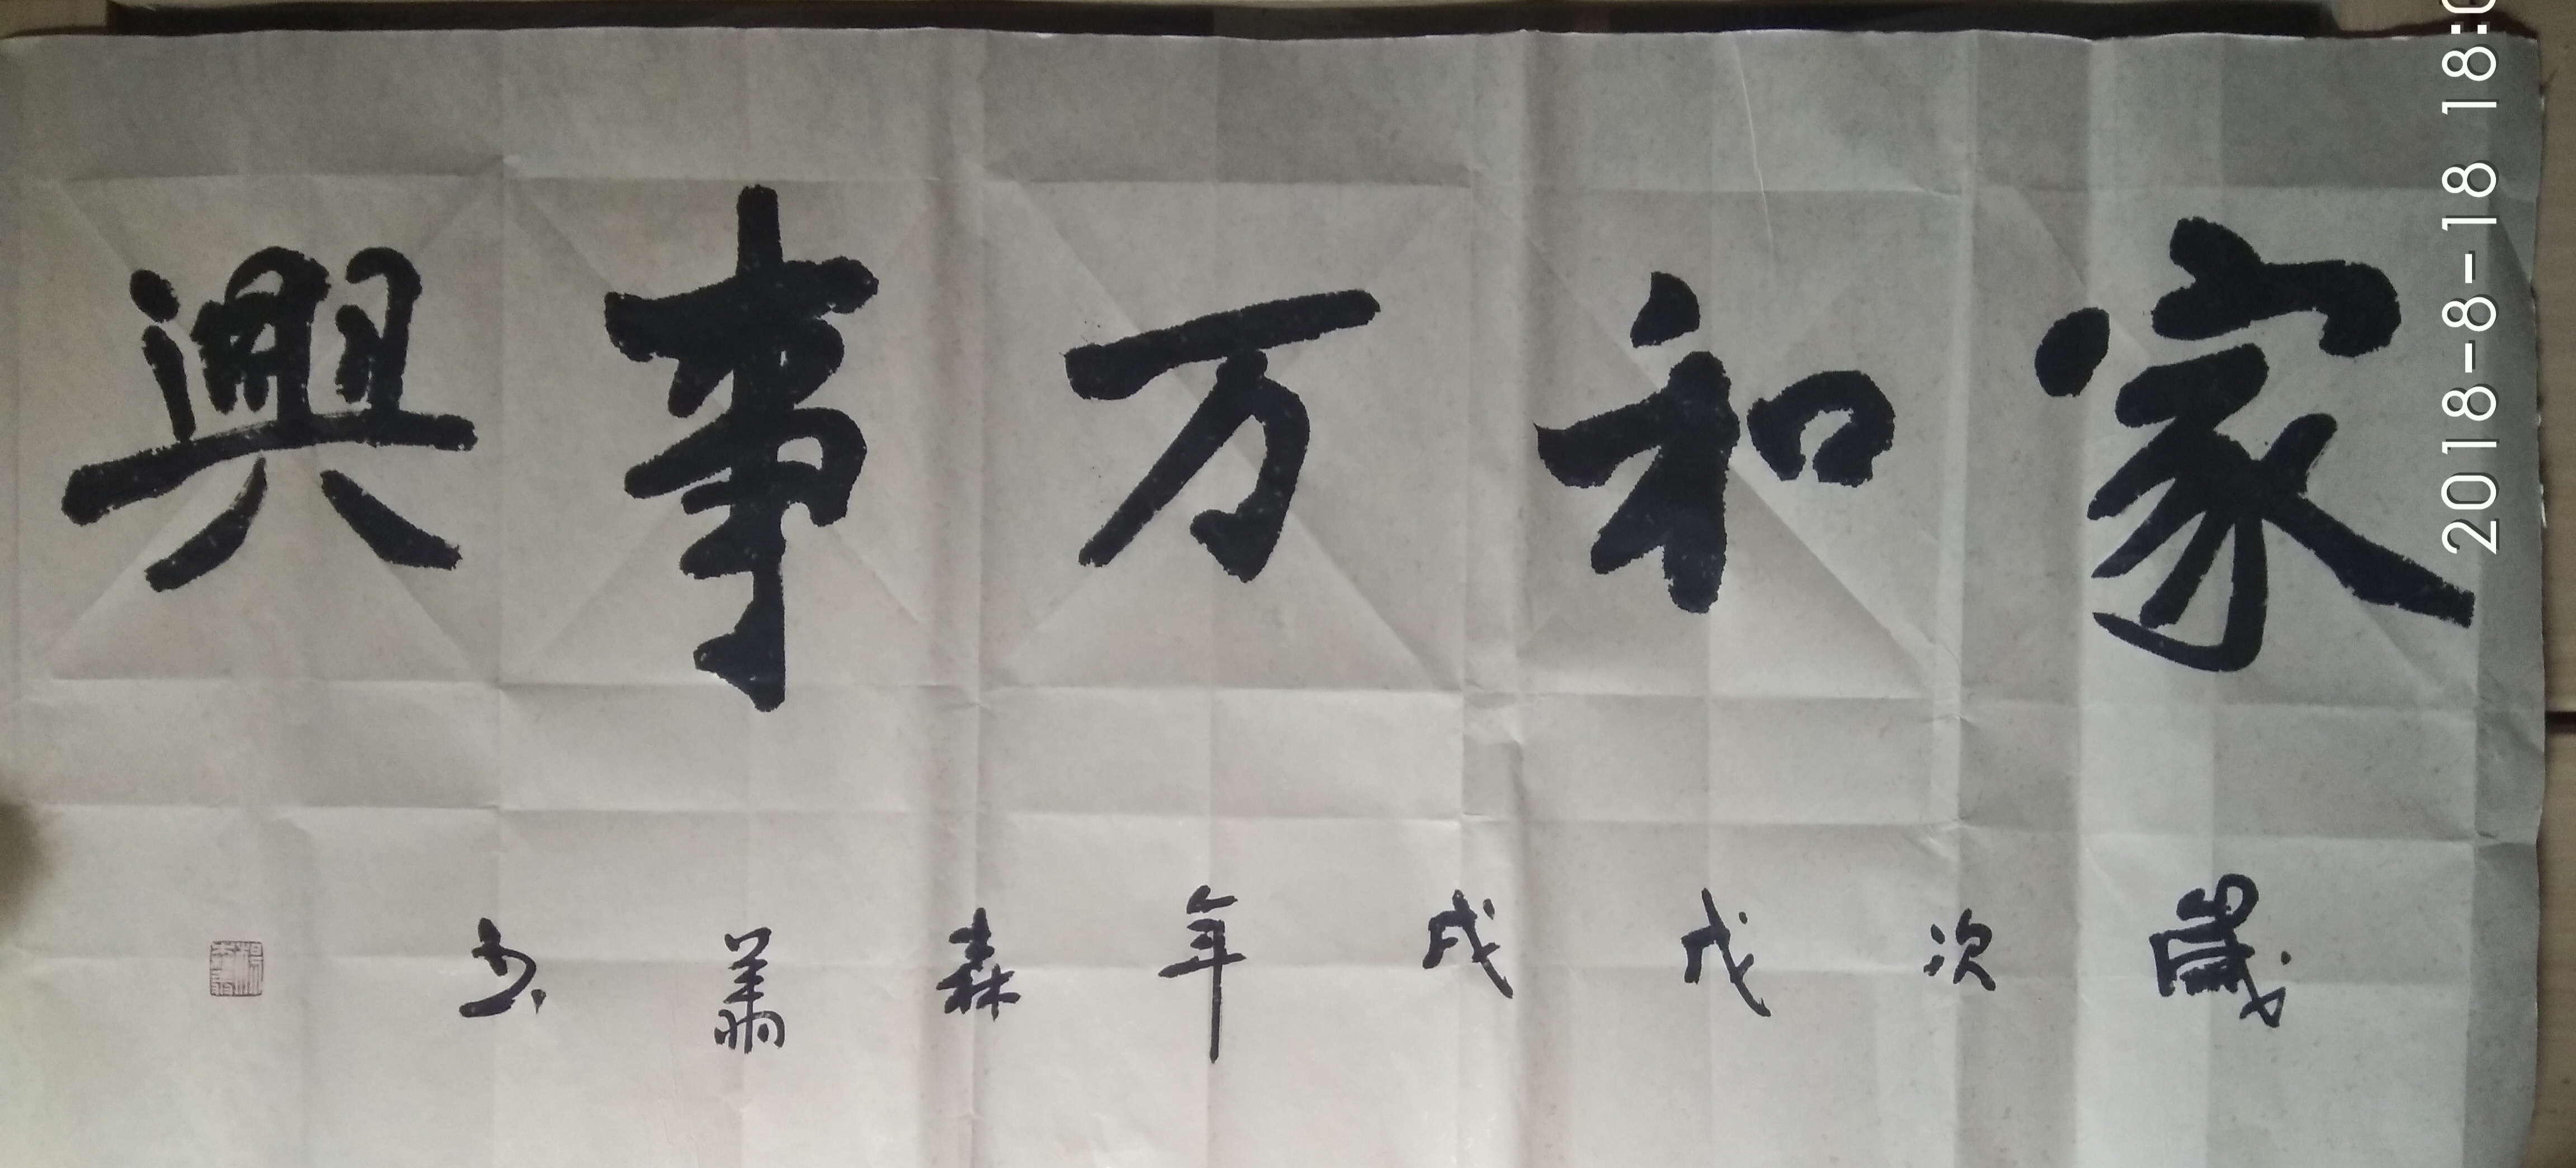 家和万事興
歲次戊戌年森萧书
2018-8-18 18:0